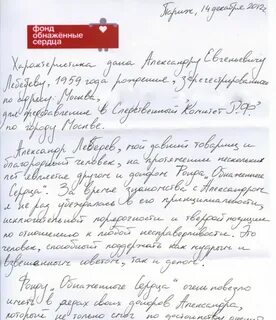 фонд
обнажённые
сердца
Париж, 14 декабря 2012г
Характеристика дана Александру Евгеньевичу
Лебедеву, 1959 года рождения, зарегистрирован
по адресу: Москва,
для предъявления в Следственный Комитет Р.Ф.
по городу Москве.
Александр Лебедев, мой давний товарищ и
благородный человек, на протяжении нескольких
лет является другом и донором Фонда „Обнажённые
Сердца". За время знакомства с Александром
я не раз убеждалась в его принципиальности,
исключительной порядочности и твёрдой позиции
по отношению к любой несправедливости. Это
человек, способный поддержать как мудрым и
взвешенным советом, так и делом.
Фонду „Обнажённые Сердца" очень повезло
иметь в рядах своих доноров Александра,
который не только смог по достоинству оценить